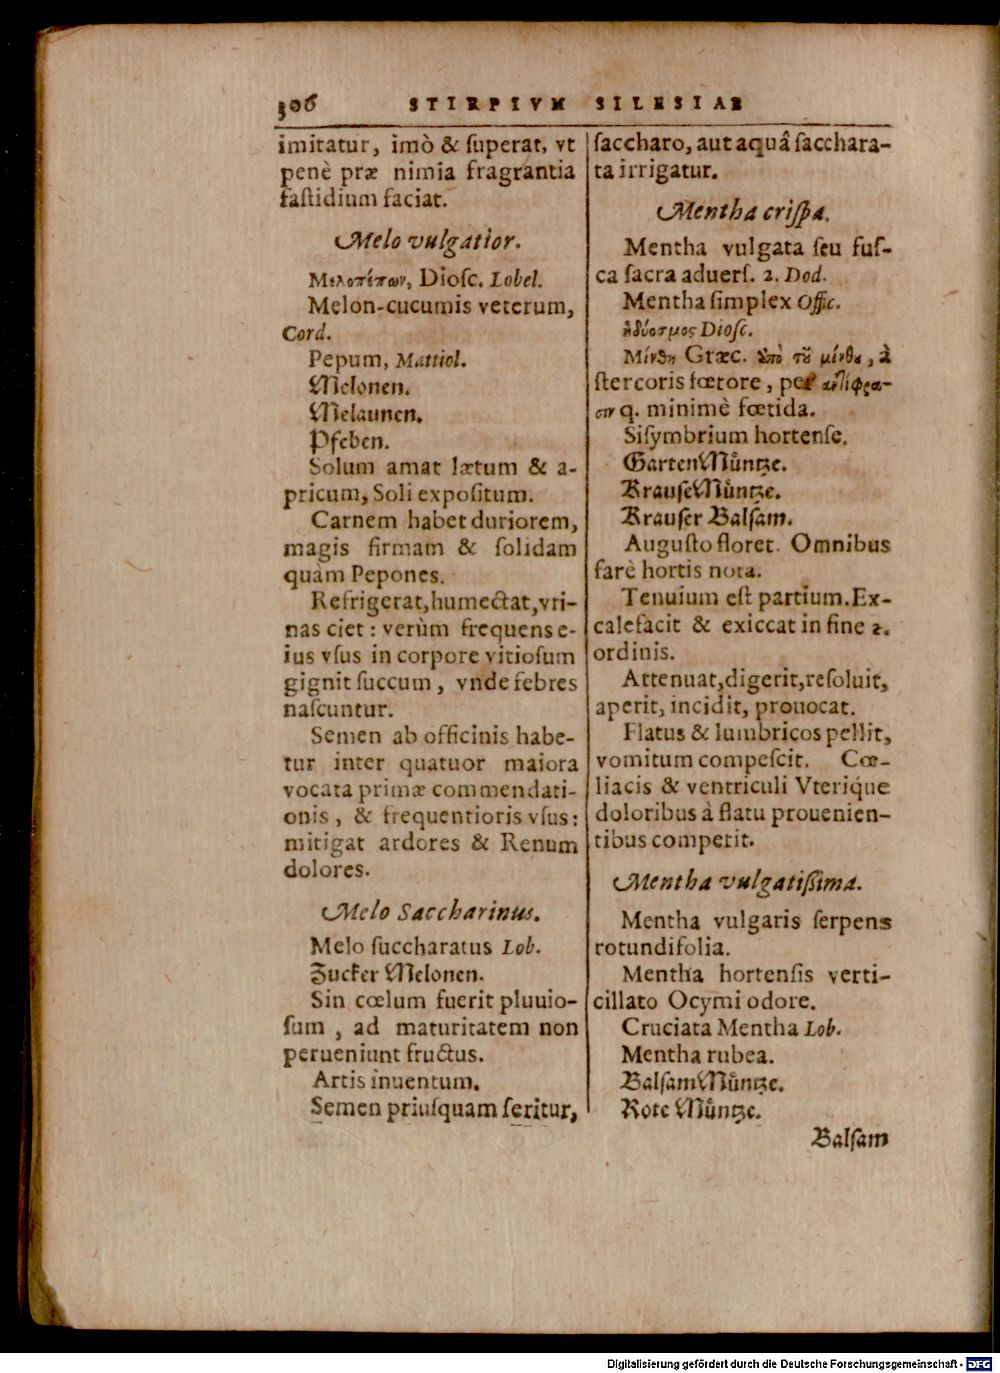 306 STIRPIVM SILESIAE
imitatur, imò & ſuperat, vt
penè præ nimia fragrantia
faſtidium faciat.
Melo vulgatior.
Μηλοπέπων, Dioſc. Lobel.
Melon-cucumis veterum,
Cord.
Pepum, Mattiol.
Melonen.
Melaunen.
Pfeben.
Solum amat lætum & a-
pricum, Soli expoſitum.
Carnem habet duriorem,
magis firmam & ſolidam
quàm Pepones.
Refrigerat, humectat, vri-
nas ciet : verùm frequens e-
ius vſus in corpore vitioſum
gignit ſuccum, vnde febres
naſcuntur.
Semen ab officinis habe-
tur inter quatuor maiora
vocata primæ commendati-
onis, & frequentioris vſus:
mitigat ardores & Renum
dolores.
Melo Saccharinus.
Melo ſuccharatus Lob.
Zucker Melonen.
Sin cœlum fuerit pluuio-
ſum, ad maturitatem non
perueniunt fructus.
Artis inuentum.
Semen priuſquam ſeritur,
ſaccharo, aut aquâ ſacchara-
ta irrigatur.
Mentha criſpa.
Mentha vulgata ſeu fuſ-
ca ſacra aduerſ. 2. Dod.
Mentha ſimplex Offic.
ἡδύοσμος Dioſc.
Μίνθη Græc. ἀπὸ τοῦ μίνθου, à
ſtercoris fœtore, per ἀντίφρα-
σιν q. minimè fœtida.
Siſymbrium hortenſe.
GartenMůntze.
KrauſeMůntze.
Krauſer Balſam.
Auguſto floret. Omnibus
farè hortis nota.
Tenuium eſt partium. Ex-
calefacit & exiccat in fine 2.
ordinis.
Attenuat, digerit, reſoluit,
aperit, incidit, prouocat.
Flatus & lumbricos pellit,
vomitum compeſcit. Cœ-
liacis & ventriculi Vteriq́ue
doloribus à flatu prouenien-
tibus competit.
Mentha vulgatiſsima.
Mentha vulgaris ſerpens
rotundifolia.
Mentha hortenſis verti-
cillato Ocymi odore.
Cruciata Mentha Lob.
Mentha rubea.
BalſamMůntze.
Rote Můntze.
Balſam
Digitalisierung gefördert durch die Deutsche Forschungsgemeinschaft - DFG